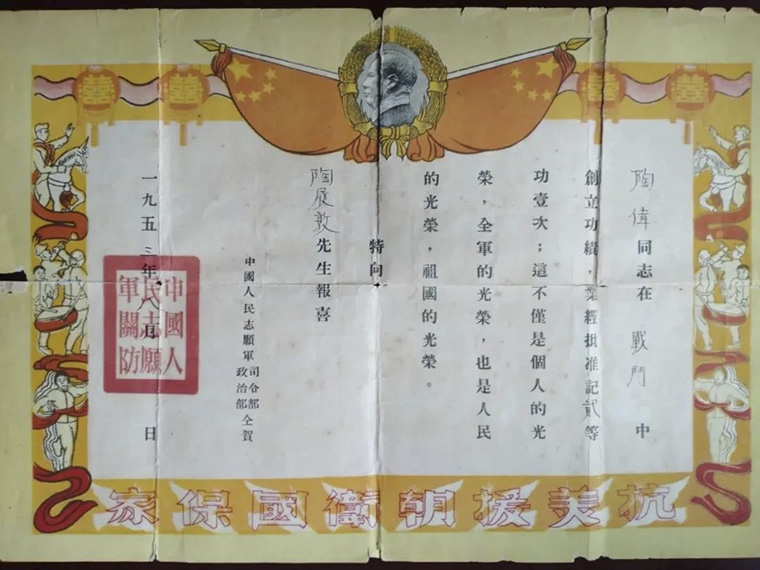 陶偉同志在戰鬥中
創立功績，業經批准記貳等
功壹次；這不僅是個人的光
榮，全軍的光榮，也是人民
的光榮，祖國的光榮。
特向
陶展敦先生報喜
中國人民志願軍司令部政治部仝賀
一九五三年八月　日
中國人民志願軍關防
抗美援朝衛國保家
囍
囍
囍
囍